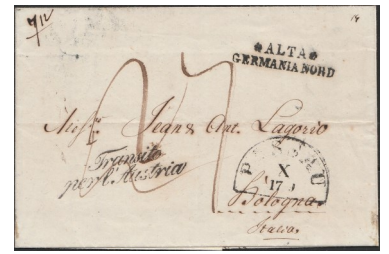 7/12
ALTA
GERMANIA NORD
27
Jean & Ant. Lagorio
Transito
per l'Austria
PASSAU
X
17
Bologna
Italia